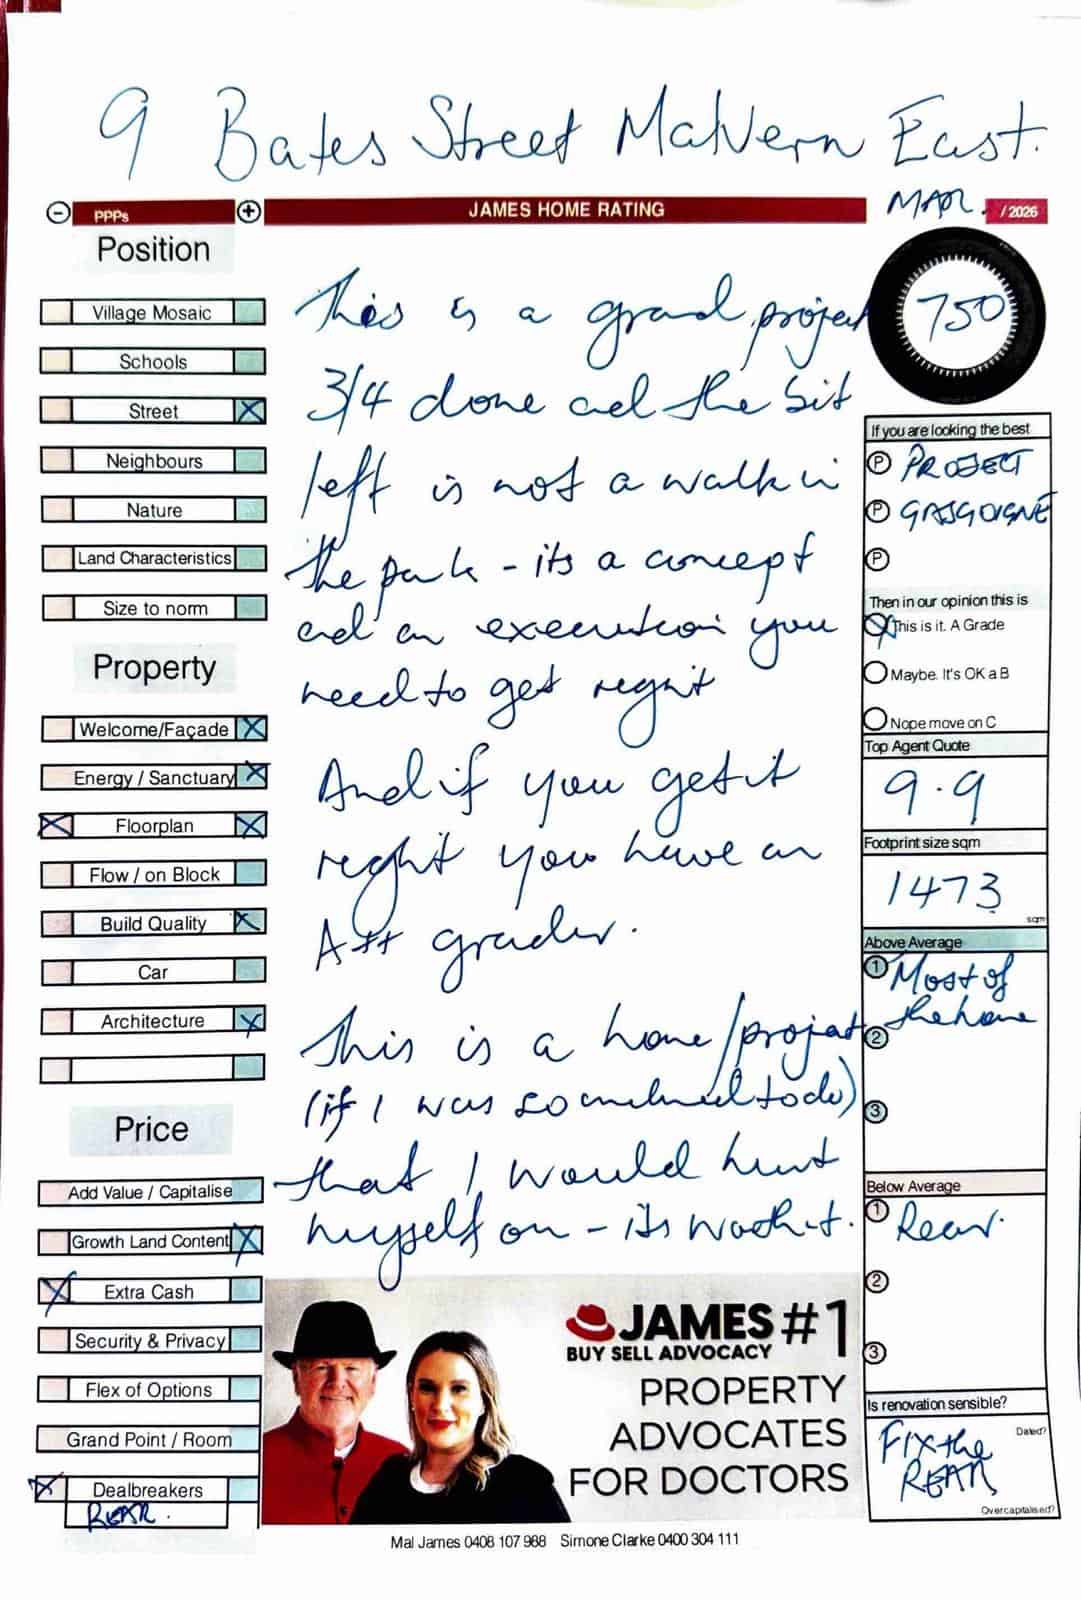 9 Bates Street Malvern East.
PPPs
JAMES HOME RATING
MAR. / 2026
Position
Village Mosaic
Schools
Street
Neighbours
Nature
Land Characteristics
Size to norm
Property
Welcome/Façade
Energy / Sanctuary
Floorplan
Flow / on Block
Build Quality
Car
Architecture
Price
Add Value / Capitalise
Growth Land Content
Extra Cash
Security & Privacy
Flex of Options
Grand Point / Room
Dealbreakers
REAR.
This is a grand project
3/4 done and the bit
left is not a walk in
the park - its a concept
and an execution you
need to get right
And if you get it
right you have an
A++ grader.
This is a home/project
(if I was so inclined to do)
that I would hunt
myself on - its worth it.
750
If you are looking the best
P PROJECT
P GASGOIGNE
P
Then in our opinion this is
This is it. A Grade
Maybe. It's OK a B
Nope move on C
Top Agent Quote
9.9
Footprint size sqm
1473
sqm
Above Average
1 Most of
the home
2
3
Below Average
1 Rear.
2
3
Is renovation sensible?
Dated?
FIX the
REAR
Overcapitalised?
JAMES #1
BUY SELL ADVOCACY
PROPERTY
ADVOCATES
FOR DOCTORS
Mal James 0408 107 988 Simone Clarke 0400 304 111